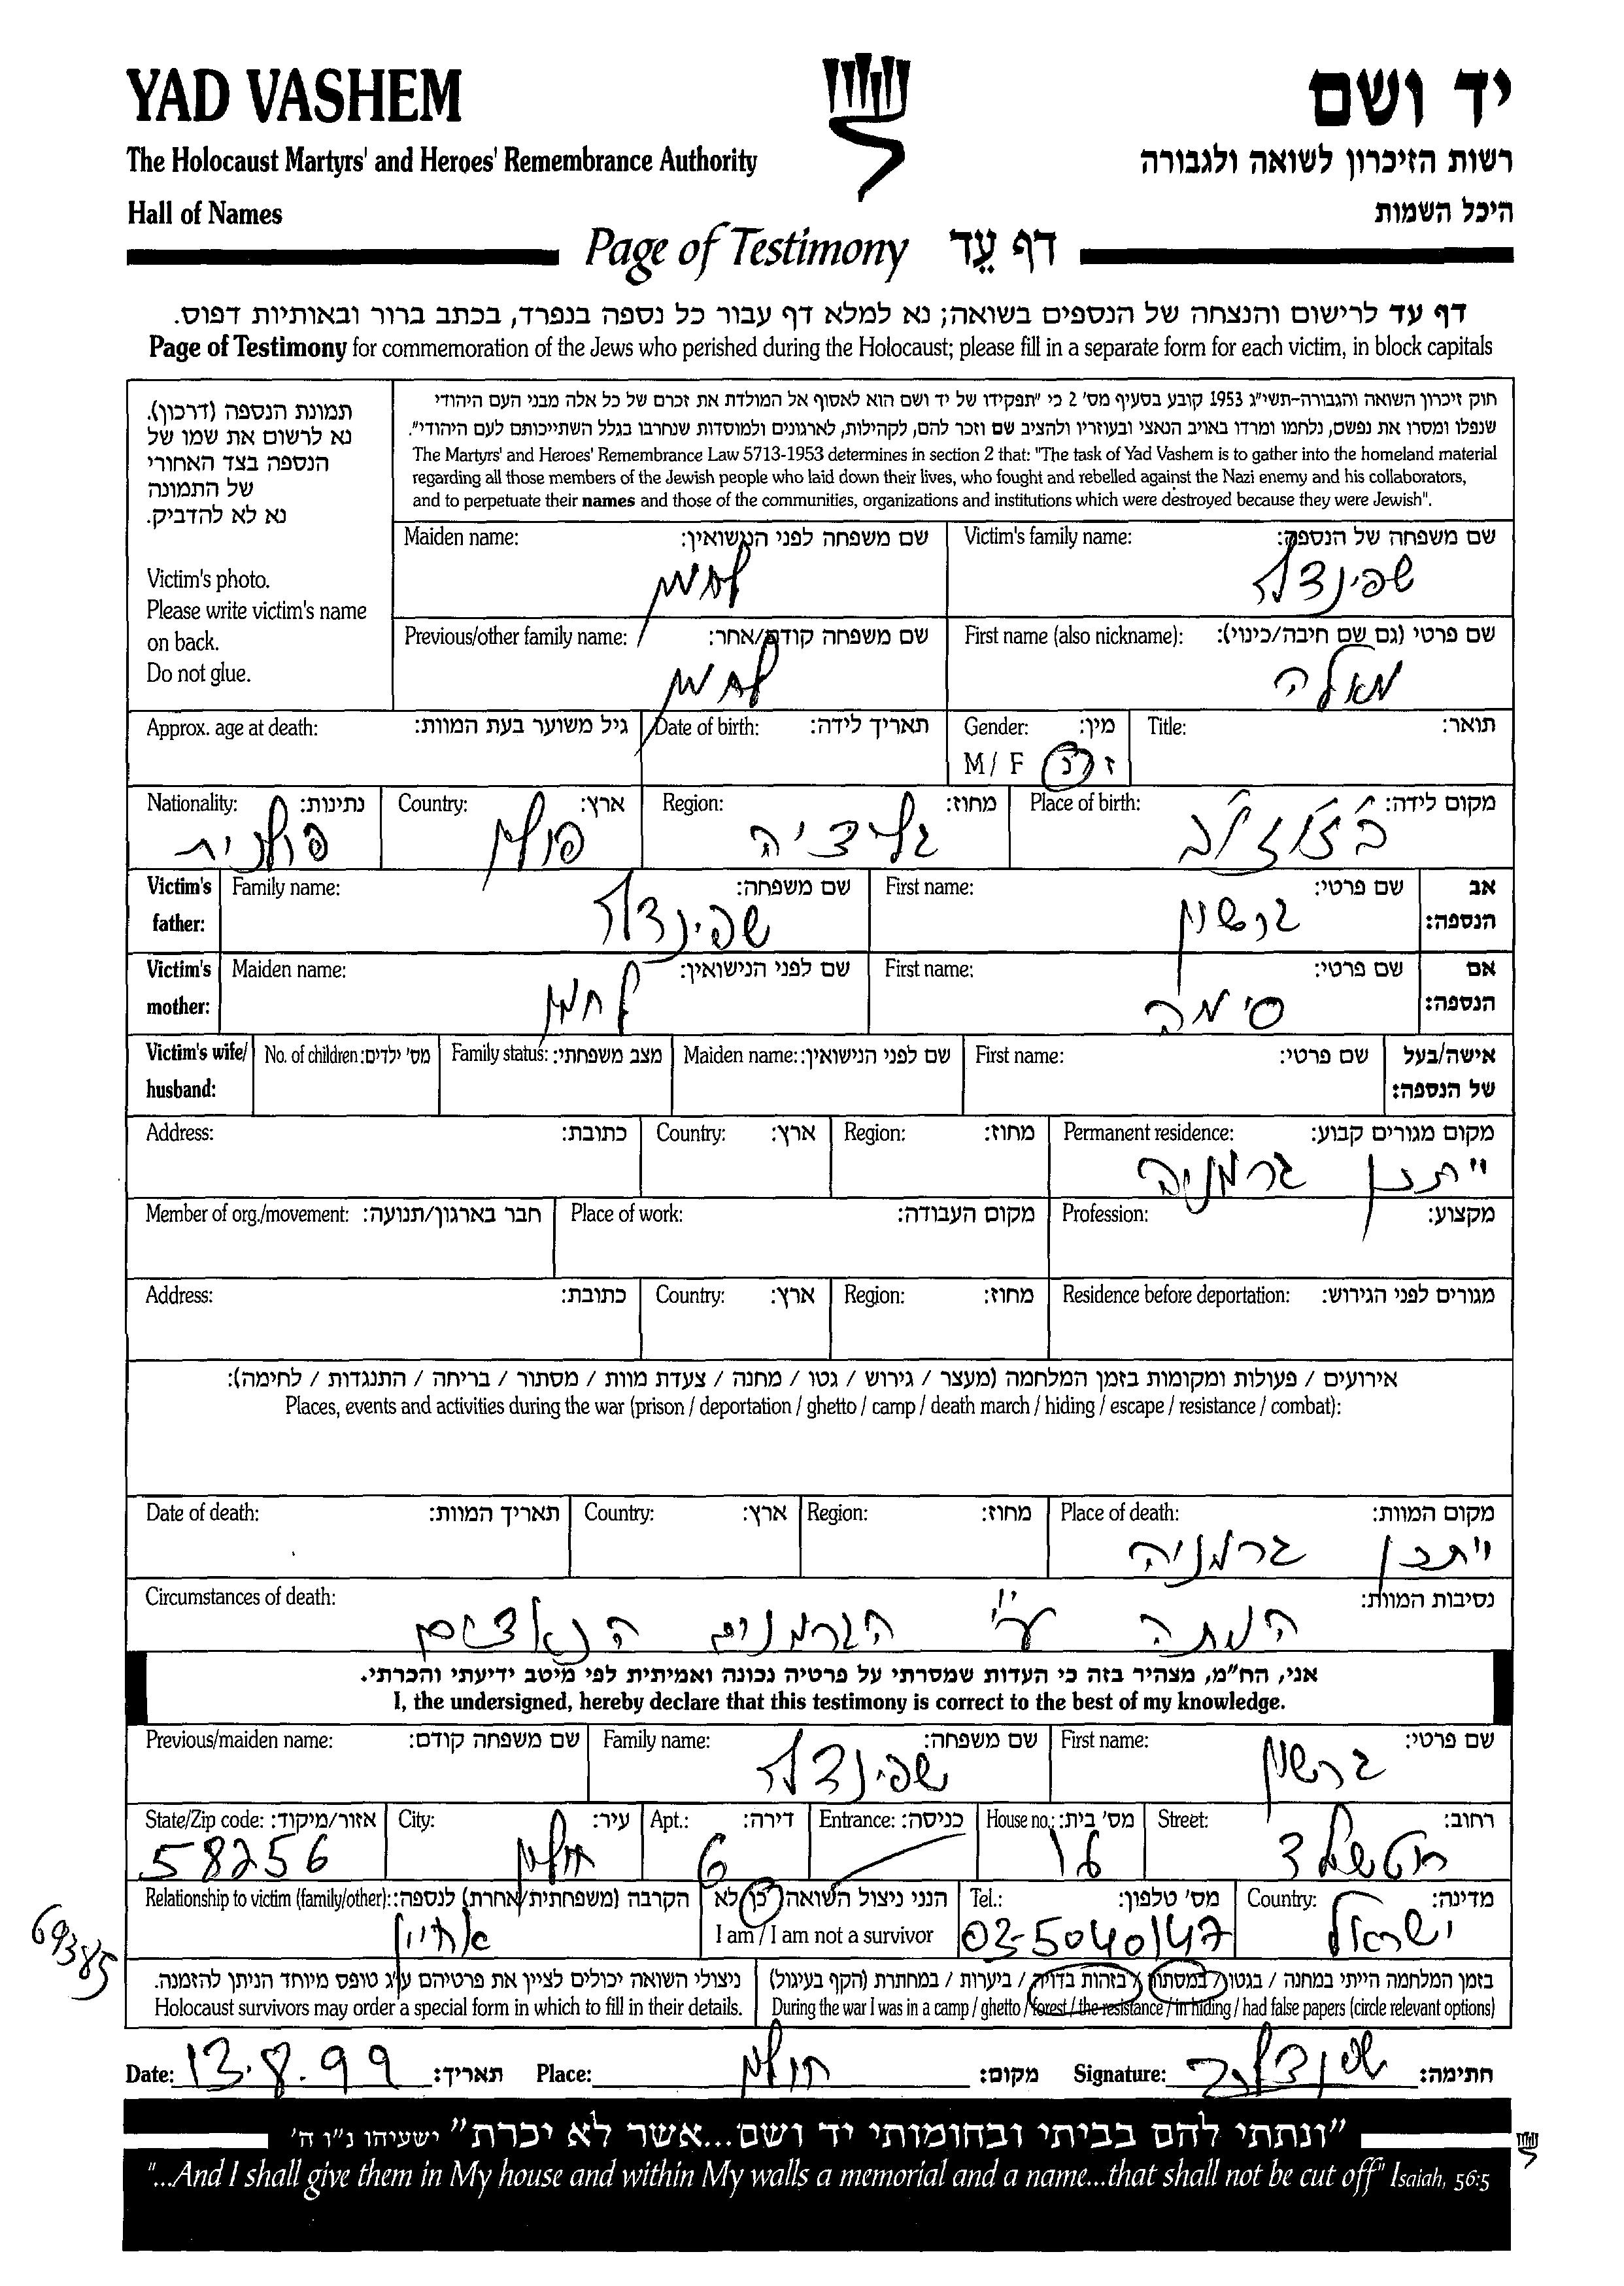 YAD VASHEM
יד ושם
The Holocaust Martyrs' and Heroes' Remembrance Authority
רשות הזיכרון לשואה ולגבורה
Hall of Names
היכל השמות
Page of Testimony דף עֵד
דף עד לרישום והנצחה של הנספים בשואה; נא למלא דף עבור כל נספה בנפרד, בכתב ברור ובאותיות דפוס.
Page of Testimony for commemoration of the Jews who perished during the Holocaust; please fill in a separate form for each victim, in block capitals
תמונת הנספה (דרכון).
נא לרשום את שמו של
הנספה בצד האחורי
של התמונה
נא לא להדביק.
Victim's photo.
Please write victim's name
on back.
Do not glue.
חוק זיכרון השואה והגבורה-תשי"ג 1953 קובע בסעיף מס' 2 כי "תפקידו של יד ושם הוא לאסוף אל המולדת את זכרם של כל אלה מבני העם היהודי
שנפלו ומסרו את נפשם, נלחמו ומרדו באויב הנאצי ובעוזריו ולהציב שם וזכר להם, לקהילות, לארגונים ולמוסדות שנחרבו בגלל השתייכותם לעם היהודי".
The Martyrs' and Heroes' Remembrance Law 5713-1953 determines in section 2 that: "The task of Yad Vashem is to gather into the homeland material
regarding all those members of the Jewish people who laid down their lives, who fought and rebelled against the Nazi enemy and his collaborators,
and to perpetuate their names and those of the communities, organizations and institutions which were destroyed because they were Jewish".
Victim's family name: שם משפחה של הנספה:
שפינדלר
Maiden name: שם משפחה לפני הנישואין:
First name (also nickname): שם פרטי (גם שם חיבה/כינוי):
מאלה
Previous/other family name: שם משפחה קודם/אחר:
Title: תואר:
Gender: מין:
M / F ז / נ
Date of birth: תאריך לידה:
Approx. age at death: גיל משוער בעת המוות:
Place of birth: מקום לידה:
Region: מחוז:
גליציה
Country: ארץ:
פולין
Nationality: נתינות:
פולנית
Victim's father: אב הנספה:
First name: שם פרטי:
גרשון
Family name: שם משפחה:
שפינדלר
Victim's mother: אם הנספה:
First name: שם פרטי:
סימה
Maiden name: שם לפני הנישואין:
Victim's wife/ husband: אישה/בעל של הנספה:
First name: שם פרטי:
Maiden name: שם לפני הנישואין:
Family status: מצב משפחתי:
No. of children: מס' ילדים:
Permanent residence: מקום מגורים קבוע:
גרמניה
Region: מחוז:
Country: ארץ:
Address: כתובת:
Profession: מקצוע:
Place of work: מקום העבודה:
Member of org./movement: חבר בארגון/תנועה:
Residence before deportation: מגורים לפני הגירוש:
Region: מחוז:
Country: ארץ:
Address: כתובת:
אירועים / פעולות ומקומות בזמן המלחמה (מעצר / גירוש / גטו / מחנה / צעדת מוות / מסתור / בריחה / התנגדות / לחימה):
Places, events and activities during the war (prison / deportation / ghetto / camp / death march / hiding / escape / resistance / combat):
Place of death: מקום המוות:
גרמניה
Region: מחוז:
Country: ארץ:
Date of death: תאריך המוות:
Circumstances of death: נסיבות המוות:
הומתה ע"י הגרמנים הנאצים
אני, הח"מ, מצהיר בזה כי העדות שמסרתי על פרטיה נכונה ואמיתית לפי מיטב ידיעתי והכרתי.
I, the undersigned, hereby declare that this testimony is correct to the best of my knowledge.
First name: שם פרטי:
גרשון
Family name: שם משפחה:
שפינדלר
Previous/maiden name: שם משפחה קודם:
Street: רחוב:
רוטשילד
House no.: מס' בית:
16
Entrance: כניסה:
Apt.: דירה:
6
City: עיר:
חולון
State/Zip code: אזור/מיקוד:
58256
Country: מדינה:
ישראל
Tel.: מס' טלפון:
03-5040147
הנני ניצול השואה כן/לא
I am / I am not a survivor
Relationship to victim (family/other): הקרבה (משפחתית/אחרת) לנספה:
אחיין
69385
בזמן המלחמה הייתי במחנה / בגטו / במסתור / בזהות בדויה / ביערות / במחתרת (הקף בעיגול)
During the war I was in a camp / ghetto / forest / the resistance / in hiding / had false papers (circle relevant options)
ניצולי השואה יכולים לציין את פרטיהם ע"ג טופס מיוחד הניתן להזמנה.
Holocaust survivors may order a special form in which to fill in their details.
Date: 13.8.99 תאריך: Place: חולון מקום: Signature: חתימה:
"ונתתי להם בביתי ובחומותי יד ושם...אשר לא יכרת" ישעיהו נ"ו ה'
"...And I shall give them in My house and within My walls a memorial and a name...that shall not be cut off" Isaiah, 56:5